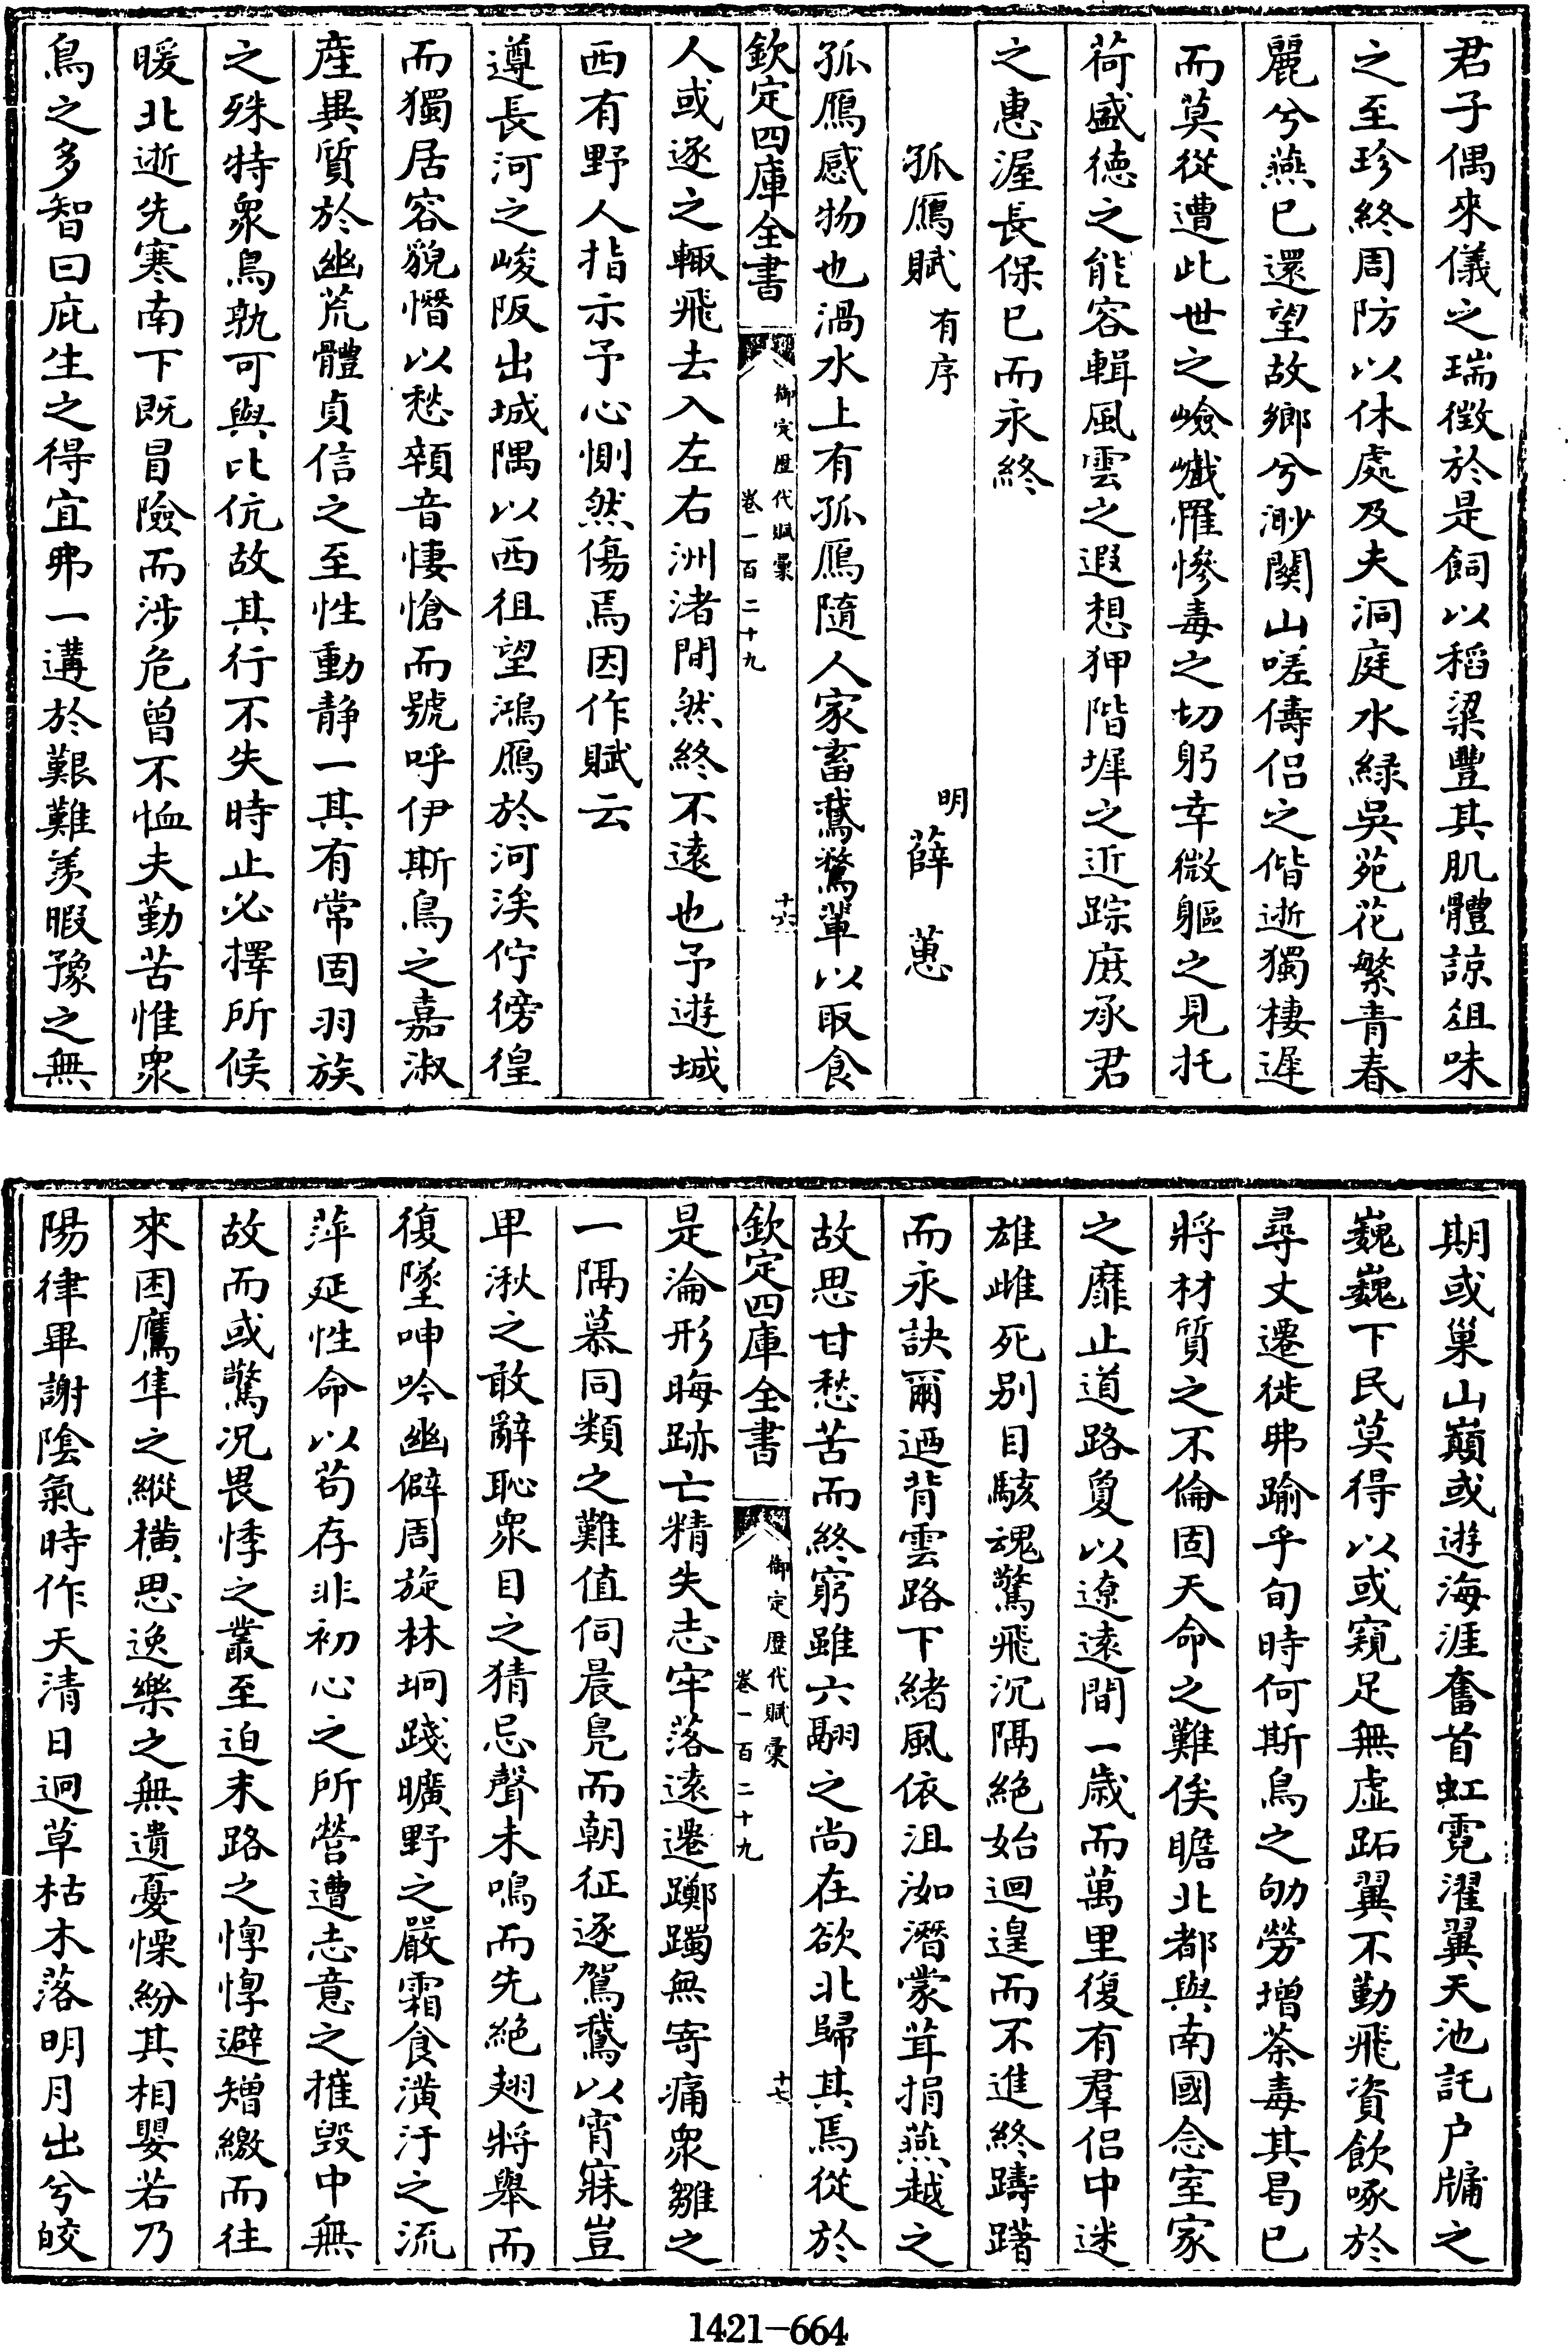 君子偶來儀之瑞徴於是飼以稻粱豐其肌體諒俎味
之至珍終周防以休處及夫洞庭水緑吳苑花繁青春
麗兮燕已還望故鄉兮渺闗山嗟儔侣之偕逝獨棲遲
而莫從遭此世之嶮巇罹慘毒之切躬幸微軀之見托
荷盛徳之能容輯風雲之遐想狎階墀之近踪庻承君
之惠渥長保已而永終
孤鴈賦 有序
明 薛 蕙
孤鴈感物也渦水上有孤鴈隨人家畜鵞鶩輩以取食
欽定四庫全書
御定歴代賦彙
卷一百二十九
十六
人或逐之輙飛去入左右洲渚間然終不逺也予遊城
西有野人指示予心惻然傷焉因作賦云
遵長河之峻阪出城隅以西徂望鴻鴈於河涘佇徬徨
而獨居容貌慘以愁顇音悽愴而號呼伊斯鳥之嘉淑
産異質於幽荒體貞信之至性動静一其有常固羽族
之殊特衆鳥孰可與比伉故其行不失時止必擇所候
暖北逝先寒南下既冒險而渉危曾不恤夫勤苦惟衆
鳥之多智曰庇生之得宜弗一遘於艱難羨暇豫之無
期或巢山巔或遊海涯奮首虹霓濯翼天池託户牗之
巍巍下民莫得以或窺足無虚跖翼不勤飛資飲啄於
尋丈遷徙弗踰乎旬時何斯鳥之劬勞增荼毒其曷已
將材質之不倫固天命之難俟瞻北都與南國念室家
之靡止道路夐以遼逺間一歳而萬里復有羣侣中迷
雄雌死别目駭魂驚飛沉隔絶始迴遑而不進終躊躇
而永訣爾廼背雲路下緒風依沮洳潛蒙茸捐燕越之
故思甘愁苦而終窮雖六翮之尚在欲北歸其焉從於
欽定四庫全書
御定歴代賦彙
卷一百二十九
十七
是淪形晦跡亡精失志牢落逺遷躑躅無寄痛衆雛之
一隔慕同類之難值伺晨鳬而朝征逐駕鵞以宵寐豈
卑湫之敢辭恥衆目之猜忌聲未鳴而先絶翅將舉而
復墜呻吟幽僻周旋林坰踐曠野之嚴霜食潢汙之流
萍延性命以苟存非初心之所營遭志意之摧毁中無
故而或驚况畏悸之叢至迫末路之惸惸避矰繳而往
來困鷹隼之縱橫思逸樂之無遺憂慄紛其相嬰若乃
陽律畢謝隂氣時作天清日迥草枯木落明月出兮皎
1421-664